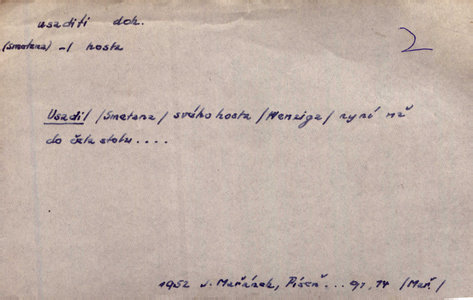 usaditi dok.
2
(Smetana) -l hosta
Usadil /Smetana/ svého hosta /Wenziga/ nyní už
do čela stolu....
1952 J. Mařánek, Píseň... 97, 14 /Mař./